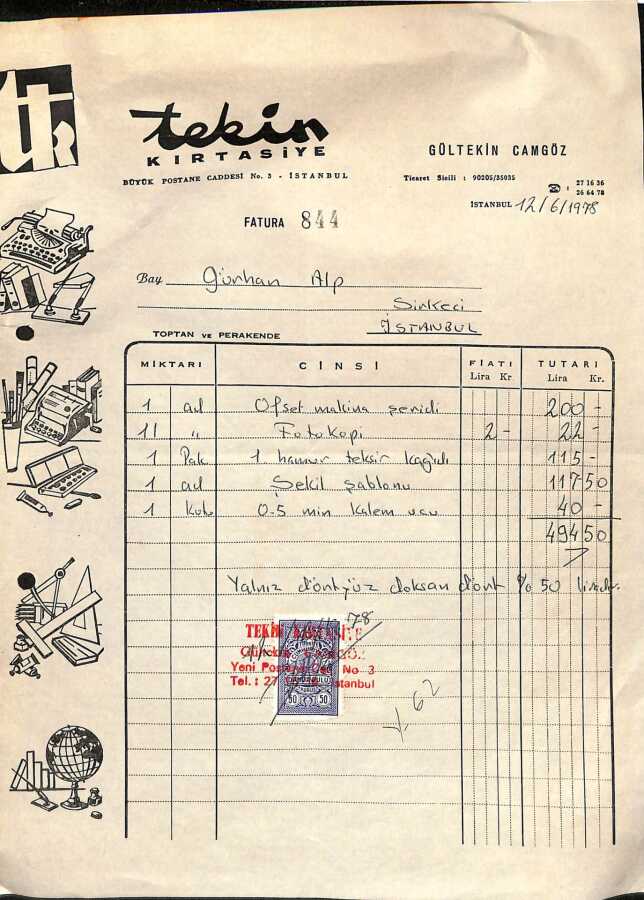 tk
tekin
KIRTASİYE
BÜYÜK POSTANE CADDESİ No. 3 - İSTANBUL
GÜLTEKİN CAMGÖZ
Ticaret Sicili : 90205/35035
☎ : 27 16 36
26 64 78
İSTANBUL 12/6/1978
FATURA 844
Bay Gürhan Alp
Sirkeci
İSTANBUL
TOPTAN VE PERAKENDE
MİKTARI CİNSİ FİATI TUTARI
Lira Kr. Lira Kr.
1 ad Ofset makina şeridi 200 -
11 " Fotokopi 2 - 22 -
1 Pak 1. hamur teksir kağıdı 115 -
1 ad Şekil şablonu 117 50
1 Kutu 0.5 min kalem ucu 40 -
494 50
Yalnız dörtyüz doksan dört % 50 liradır.
78
TEKİN KIRTASİYE
Gültekin CAMGÖZ
Yeni Postane Cad. No 3
Tel.: 27 İstanbul
50 50
62